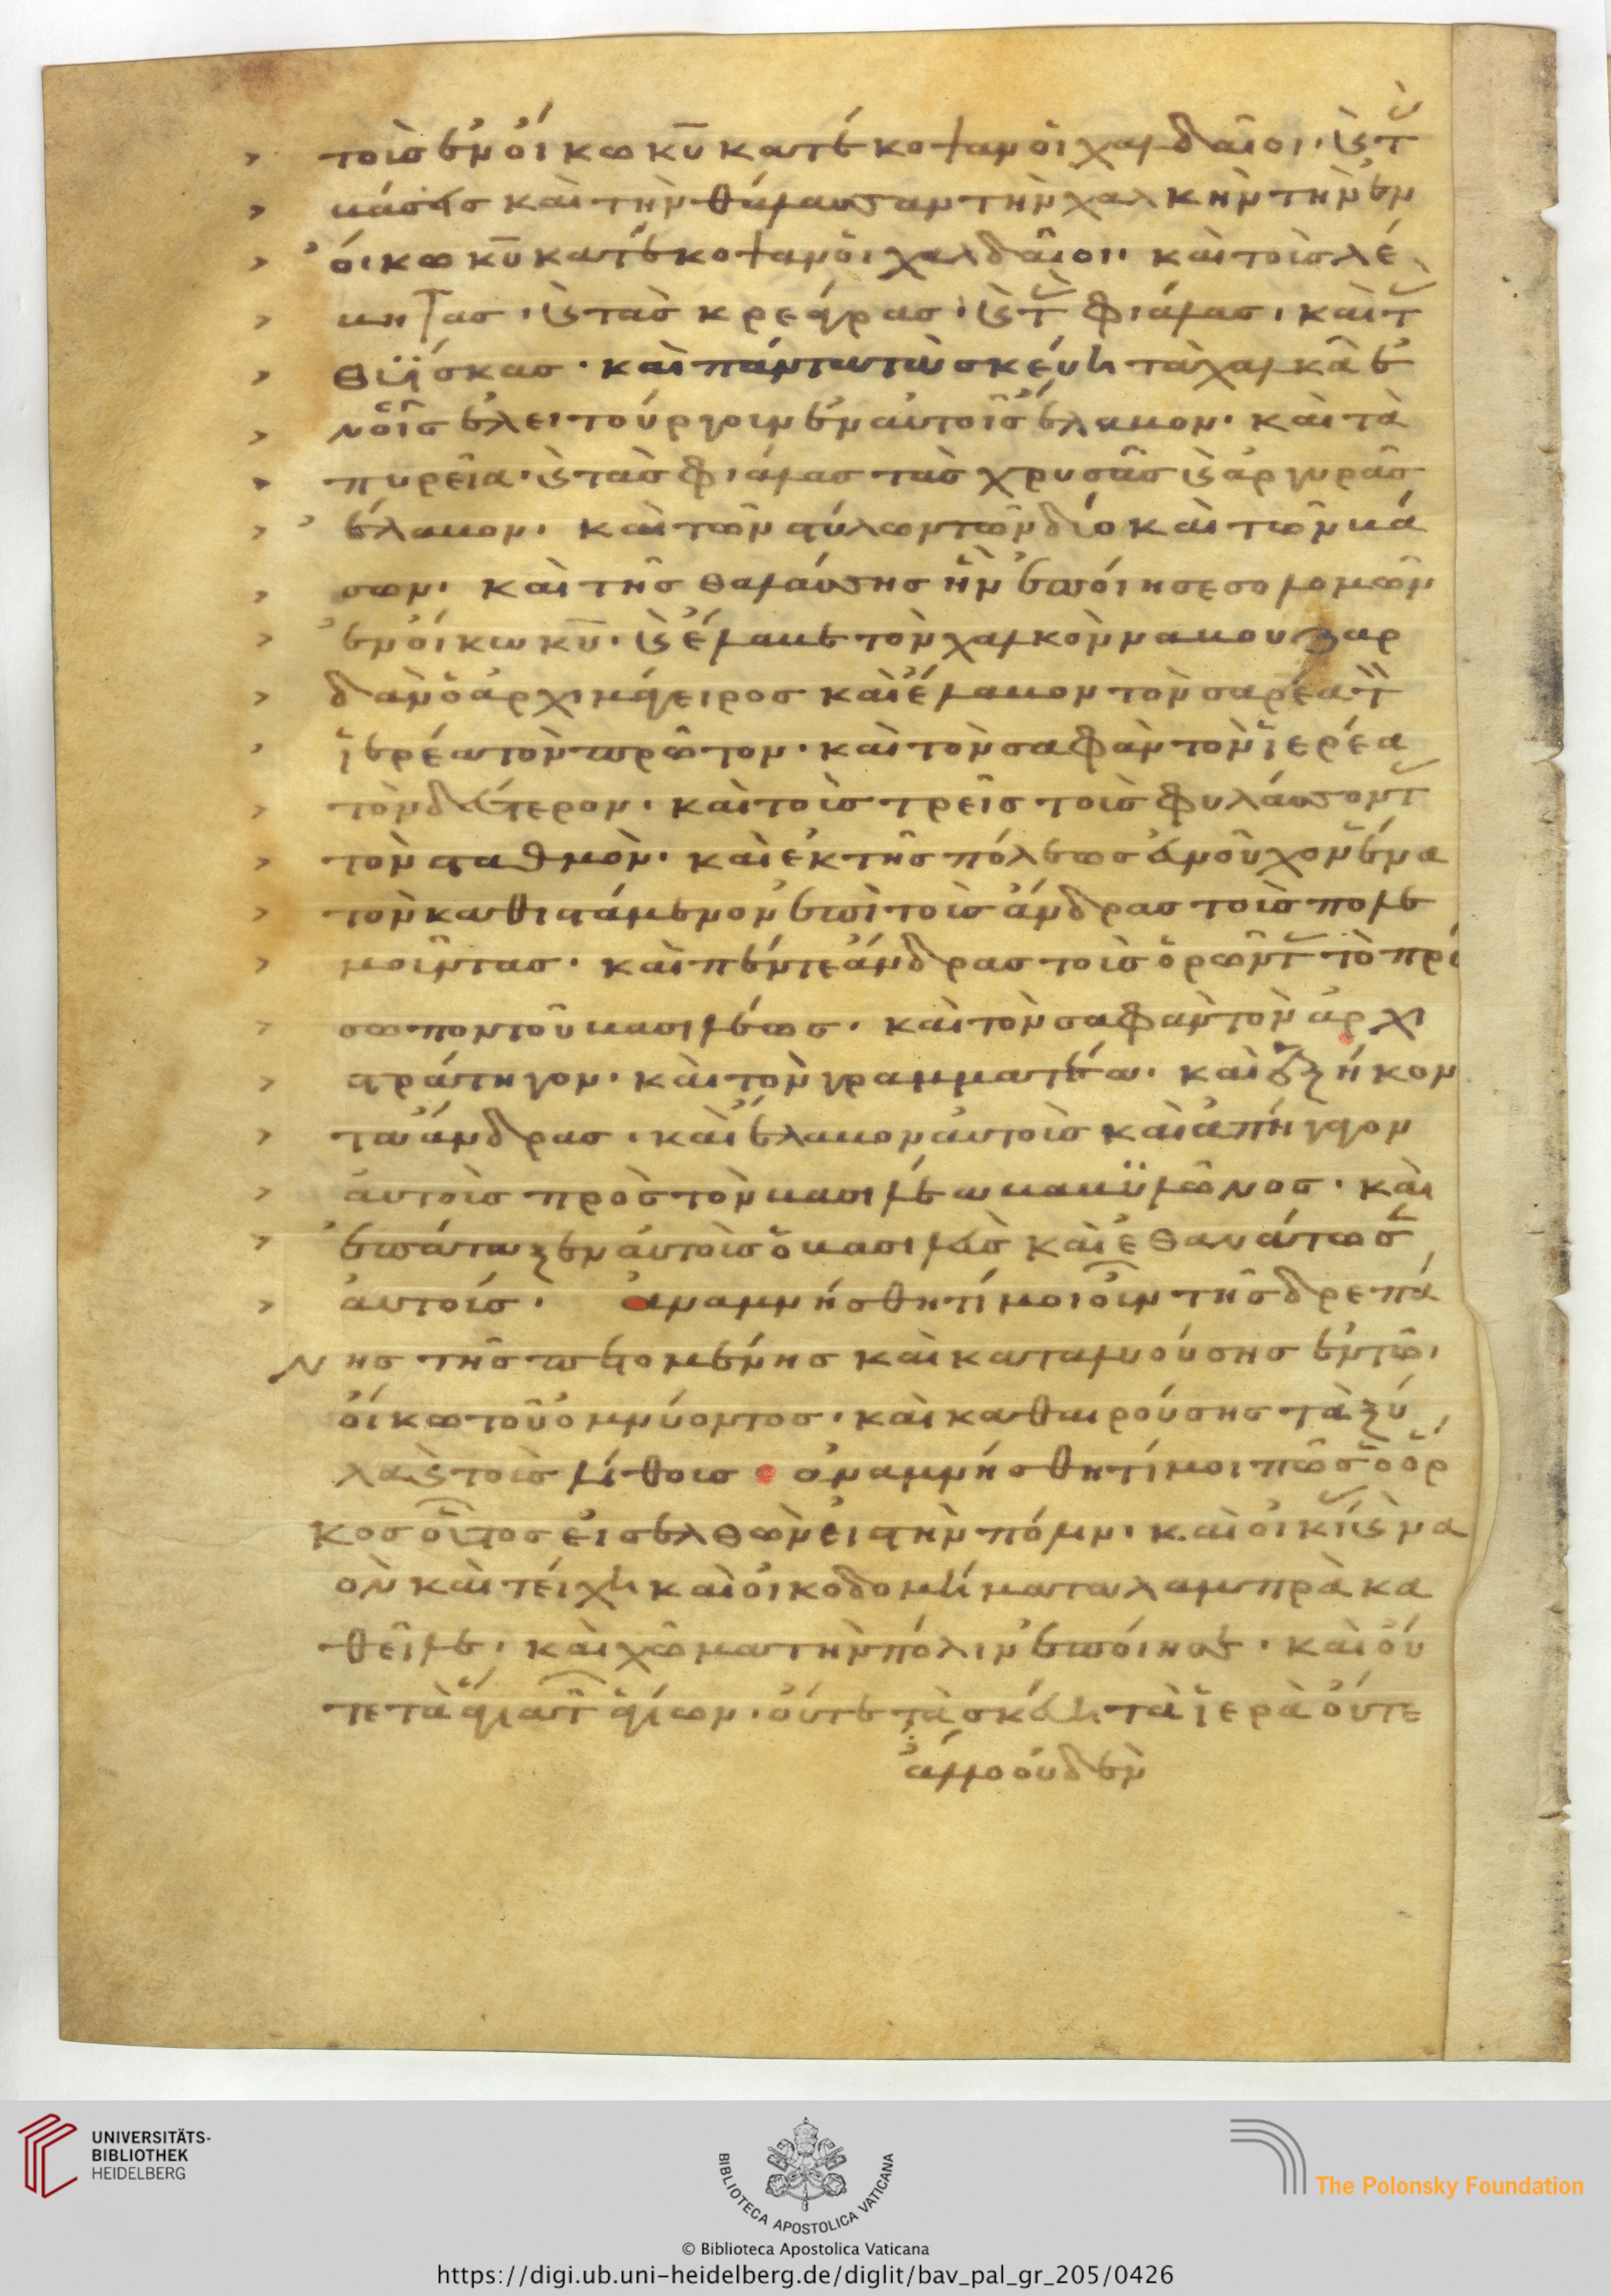 τοὺς ἐν οἴκω κ̅υ̅ κατέκοψαν οἱ χαλδαῖοι· καὶ τὰς
βάσεις καὶ τὴν θάλασσαν τὴν χαλκὴν τὴν ἐν
οἴκω κ̅υ̅ κατέκοψαν οἱ χαλδαῖοι· καὶ τοὺς λέ
βητας· καὶ τὰς κρεάγρας· καὶ τὰς φιάλας· καὶ τὰς
θυίσκας· καὶ πάντα τὰ σκεύη τὰ χαλκᾶ ἐ
ν οἷς ἐλειτούργουν ἐν αὐτοῖς ἔλαβον· καὶ τὰ
πυρεῖα· καὶ τὰς φιάλας τὰς χρυσᾶς καὶ ἀργυρᾶς
ἔλαβον· καὶ τῶν στύλων τῶν δύο καὶ τῶν βά
σεων· καὶ τῆς θαλάσσης ἣν ἐποίησε σολομῶν
ἐν οἴκω κ̅υ̅· καὶ ἔλαβε τὸν χαλκὸν ναβουζαρ
δὰν ὁ ἀρχιμάγειρος καὶ ἔλαβον τὸν σαρέα τὸν
ἱερέα τὸν πρῶτον· καὶ τὸν σαφὰν τὸν ἱερέα
τὸν δεύτερον· καὶ τοὺς τρεῖς τοὺς φυλάσσοντας
τὸν σταθμὸν· καὶ ἐκ τῆς πόλεως εὐνοῦχον ἕνα
τὸν καθιστάμενον ἐπὶ τοὺς ἄνδρας τοὺς πολε
μοῦντας· καὶ πέντε ἄνδρας τοὺς ὁρῶντας τὸ πρό
σωπον τοῦ βασιλέως· καὶ τὸν σαφὰν τὸν ἀρχι
στράτηγον· καὶ τὸν γραμματέα· καὶ ἑξήκον
τα ἄνδρας· καὶ ἔλαβον αὐτοὺς καὶ ἀπήγαγον
αὐτοὺς πρὸς τὸν βασιλέα βαβυλῶνος· καὶ
ἐπάταξεν αὐτοὺς ὁ βασιλεὺς καὶ ἐθανάτωσεν
αὐτούς· ἀναμνήσθητί μοι οὖν τῆς δρεπά
νης τῆς πετομένης καὶ καταλυούσης ἐν τῶ
οἴκω τοῦ ὀμνύοντος· καὶ καθαιρούσης τὰ ξύ
λα καὶ τοὺς λίθους· ἀναμνήσθητί μοι πῶς ὁ ὅρ
κος οὗτος εἰσελθὼν εἰς τὴν πόλιν· καὶ οἰκίας καὶ να
ὸν καὶ τείχη καὶ οἰκοδομήματα λαμπρὰ κα
θεῖλε· καὶ χῶμα τὴν πόλιν ἐποίησε· καὶ οὔ
τε τὰ ἅγια τῶν ἁγίων· οὔτε τὰ σκεύη τὰ ἱερὰ οὔτε
ἄλλο οὐδὲν
UNIVERSITÄTS-
BIBLIOTHEK
HEIDELBERG
BIBLIOTECA APOSTOLICA VATICANA
The Polonsky Foundation
© Biblioteca Apostolica Vaticana
https://digi.ub.uni-heidelberg.de/diglit/bav_pal_gr_205/0426